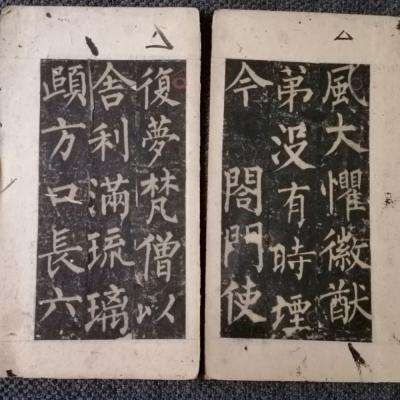 風大懼徽猷
弟没有時堙
今 閤門使
復夢梵僧以
舍利滿琉璃
頤方口長六